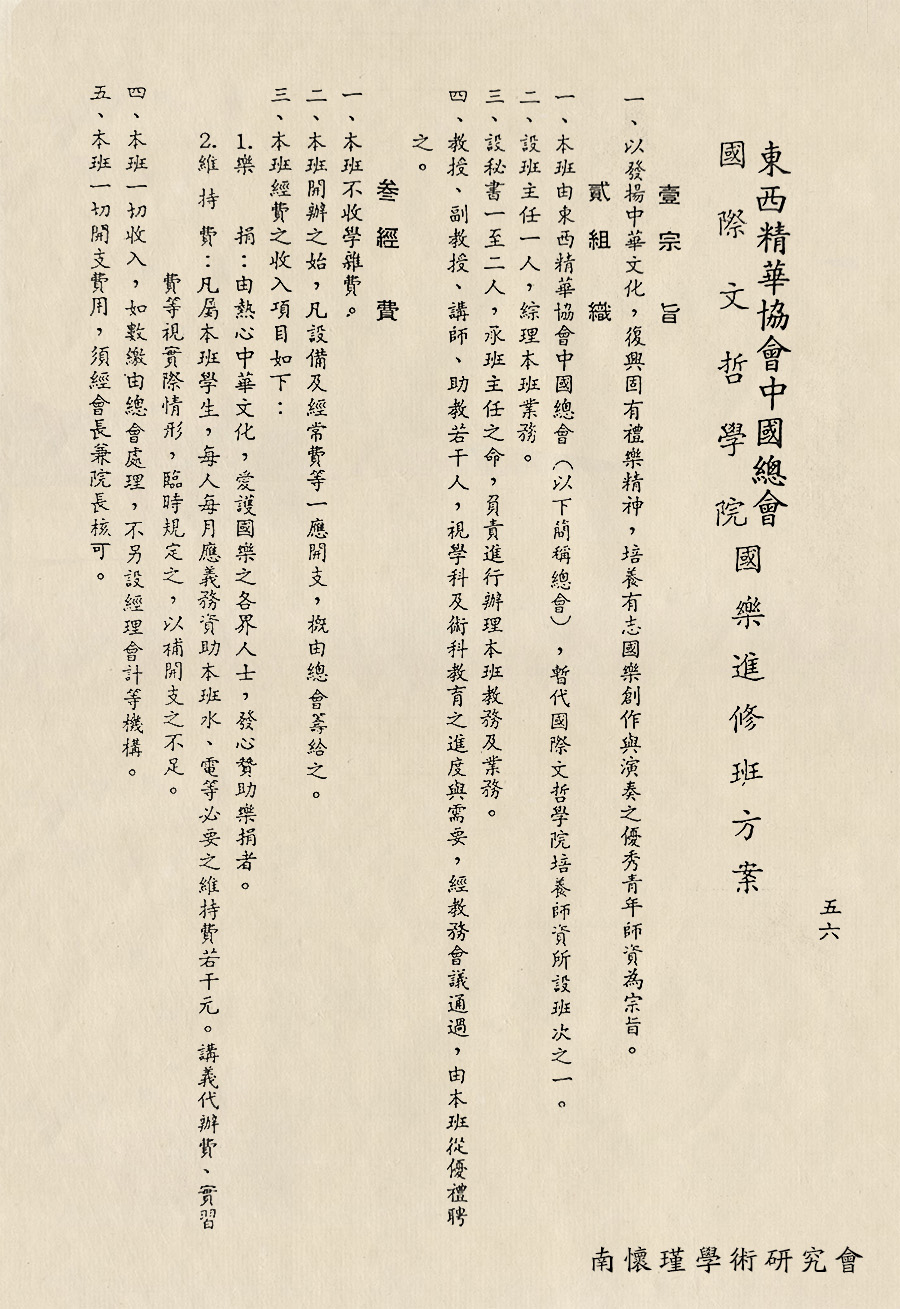 五六
東西精華協會中國總會
國際文哲學院國樂進修班方案
壹宗旨
一、以發揚中華文化，復興固有禮樂精神，培養有志國樂創作與演奏之優秀青年師資為宗旨。
貳組織
一、本班由東西精華協會中國總會（以下簡稱總會），暫代國際文哲學院培養師資所設班次之一。
二、設班主任一人，綜理本班業務。
三、設秘書一至二人，承班主任之命，負責進行辦理本班教務及業務。
四、教授、副教授、講師、助教若干人，視學科及術科教育之進度與需要，經教務會議通過，由本班從優禮聘
之。
叁經費
一、本班不收學雜費。
二、本班開辦之始，凡設備及經常費等一應開支，概由總會籌給之。
三、本班經費之收入項目如下：
1.樂捐：由熱心中華文化，愛護國樂之各界人士，發心贊助樂捐者。
2.維持費：凡屬本班學生，每人每月應義務資助本班水、電等必要之維持費若干元。講義代辦費、實習
費等視實際情形，臨時規定之，以補開支之不足。
四、本班一切收入，如數繳由總會處理，不另設經理會計等機構。
五、本班一切開支費用，須經會長兼院長核可。
南懷瑾學術研究會